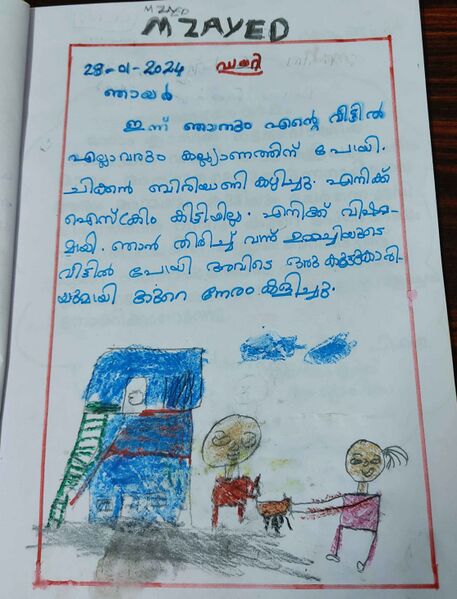 M ZAYED
M ZAYED
28-01-2024 ഡയറി
ഞായർ
ഇന്ന് ഞാനും എന്റെ വീട്ടിൽ
എല്ലാവരും കല്ല്യാണത്തിന് പോയി.
ചിക്കൻ ബിരിയാണി കഴിച്ചു. എനിക്ക്
ഐസ്ക്രീം കിട്ടിയില്ല. എനിക്ക് വിഷമ-
മായി. ഞാൻ തിരിച്ച് വന്ന് ഉമ്മച്ചിയുടെ
വീട്ടിൽ പോയി അവിടെ ഒരു കൂട്ടുകാരി-
യുമായി കുറെ നേരം കളിച്ചു.